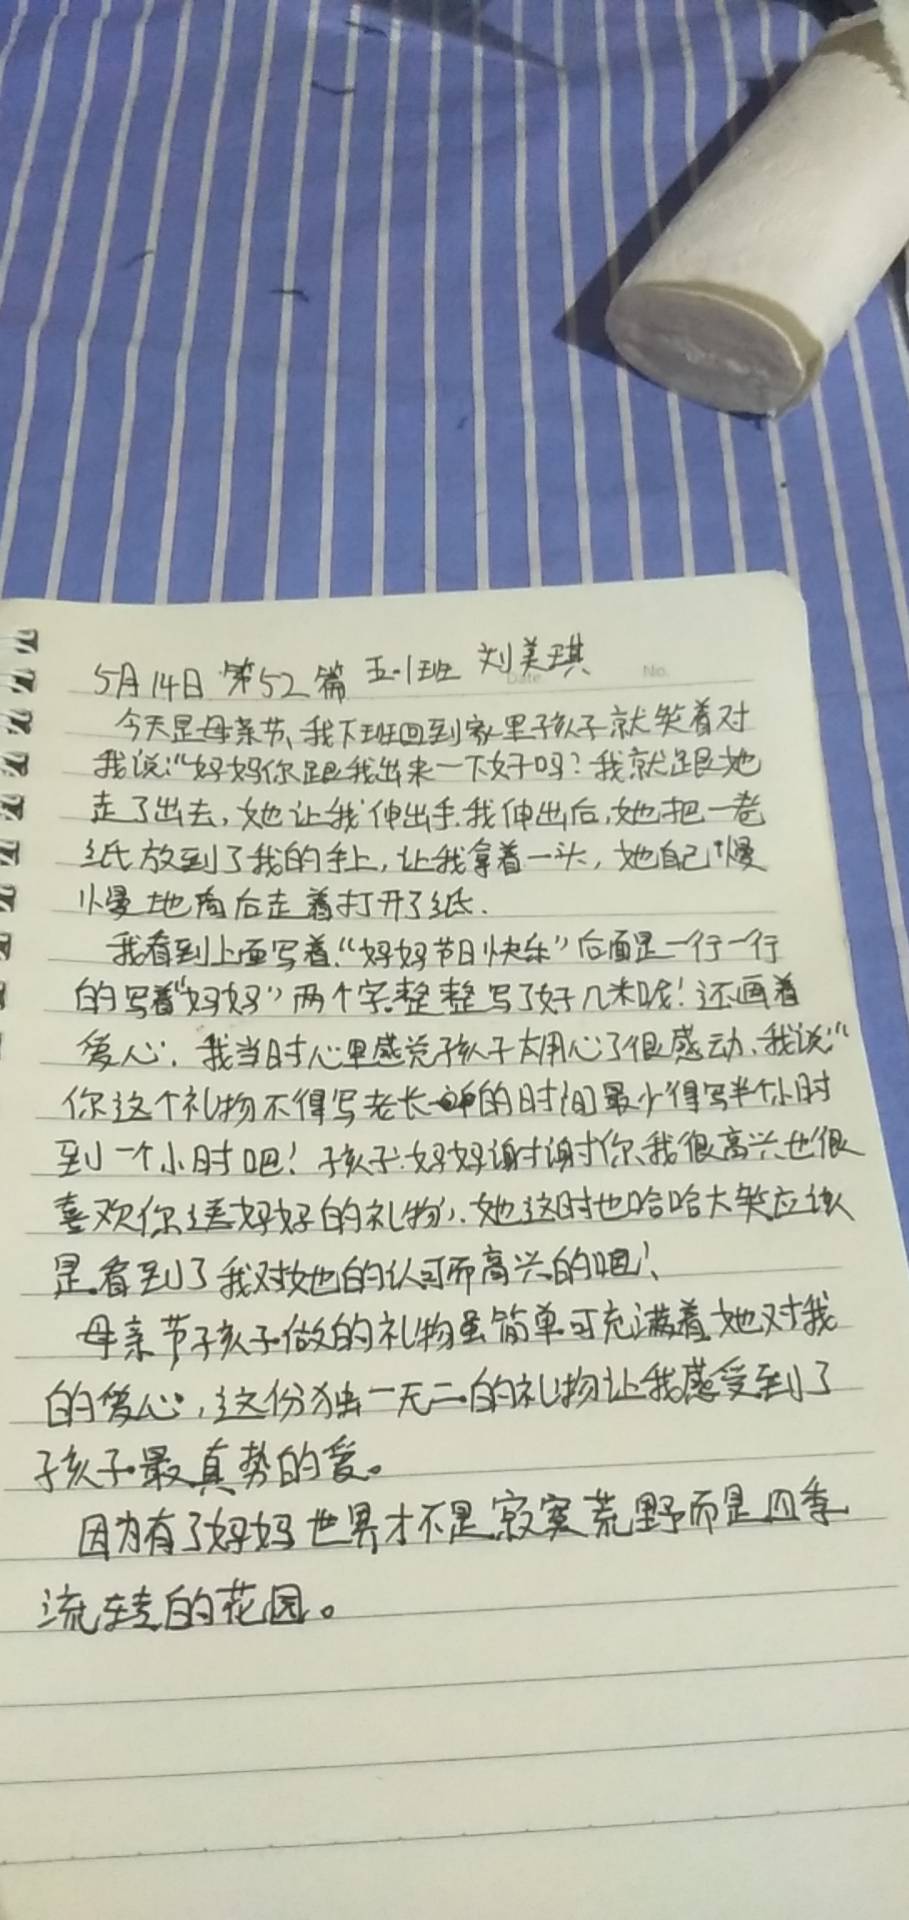 5月14日 第52篇 五.1班 刘美琪
Date No.
今天是母亲节、我下班回到家里孩子就笑着对
我说:"妈妈你跟我出来一下好吗?我就跟她
走了出去,她让我伸出手.我伸出后,她把一卷
纸放到了我的手上,让我拿着一头,她自己慢
慢地向后走着打开了纸.
我看到上面写着:"妈妈节日快乐"后面是一行一行
的写着"妈妈"两个字.整整写了好几米呢!还画着
爱心.我当时心里感觉孩子太用心了很感动、我说:"
你这个礼物不得写老长的时间最少得写半个小时
到一个小时吧!孩子.妈妈谢谢你、我很高兴也很
喜欢你送妈妈的礼物".她这时也哈哈大笑应该
是看到了我对她的认可而高兴的吧!
母亲节孩子做的礼物虽简单可充满着她对我
的爱心,这份独一无二的礼物让我感受到了
孩子最真势的爱。
因为有了妈妈世界才不是寂寞荒野而是四季
流转的花园。